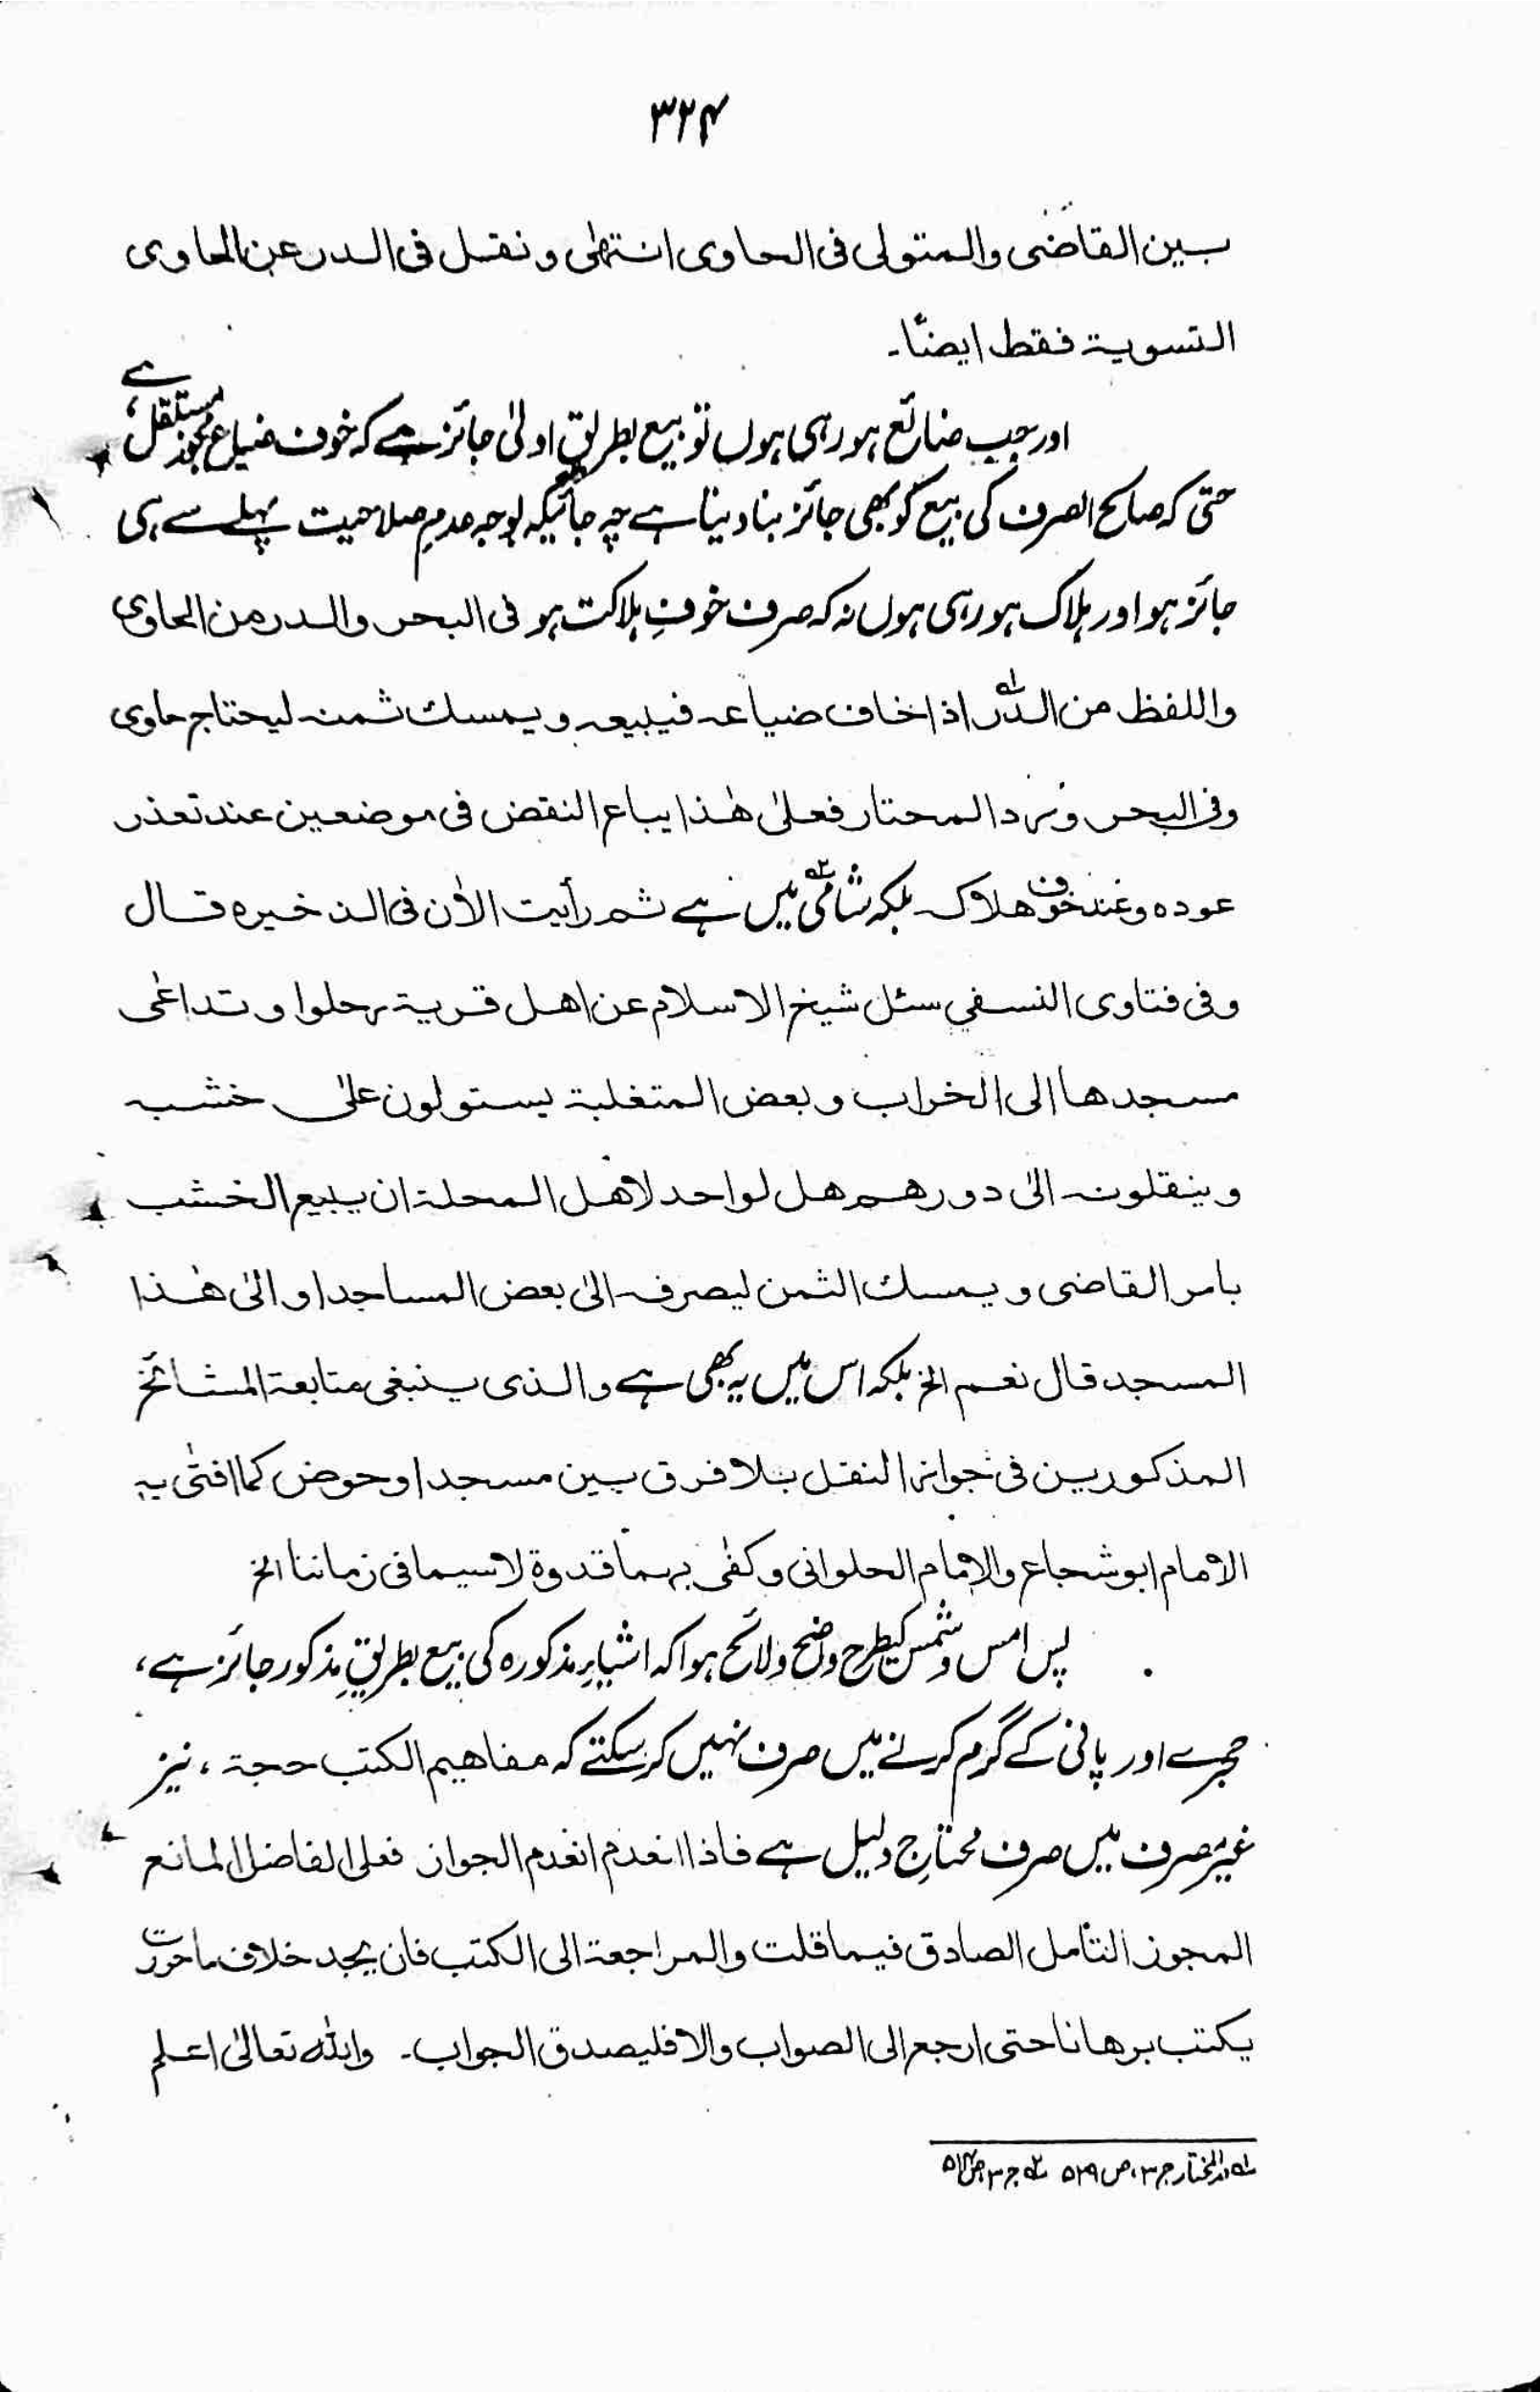 ۳۲۴
بین القاضی والمتولی فی الحاوی انتہٰی و نقل فی الدر عن الحاوی
التسویۃ فقط ایضًا۔
اور جب ضائع ہو رہی ہوں تو بیع بطریقِ اولیٰ جائز ہے کہ خوف ضیاع مجوز مستقل ہے،
حتی کہ صالح الصرف کی بیع کو بھی جائز بنا دیتا ہے چہ جائیکہ بوجہ عدمِ صلاحیت پہلے سے ہی
جائز ہو اور ہلاک ہو رہی ہوں نہ کہ صرف خوفِ ہلاکت ہو فی البحر والدر من الحاوی
واللفظ من الدر۱ اذا خاف ضیاعہ فیبیعہ و یمسك ثمنہ لیحتاج حاوی
وفی البحر و رد المحتار فعلیٰ ھٰذا یباع النقض فی موضعین عند تعذر
عودہ وعند خوف ھلاکہ بلکہ شامی۲ میں ہے ثم رأیت الاٰن فی الذخیرہ قال
وفی فتاوی النسفی سئل شیخ الاسلام عن اھل قریۃ رحلوا و تداعٰی
مسجدھا الی الخراب و بعض المتغلبۃ یستولون علیٰ خشبہ
و ینقلونہ الیٰ دورھم ھل لواحد لاھل المحلۃ ان یبیع الخشب
بامر القاضی و یمسك الثمن لیصرفہ الیٰ بعض المساجد او الیٰ ھٰذا
المسجد قال نعم الخ بلکہ اس میں یہ بھی ہے والذی ینبغی متابعۃ المشائخ
المذکورین فی جواز النقل بلا فرق بین مسجد او حوض کما افتیٰ بہ
الامام ابو شجاع والامام الحلوانی وکفٰی بہما قدوۃ لاسیما فی زماننا الخ
پس امس و شمس کیطرح واضح و لائح ہوا کہ اشیاءِ مذکورہ کی بیع بطریقِ مذکور جائز ہے،
حجرے اور پانی کے گرم کرنے میں صرف نہیں کر سکتے کہ مفاھیم الکتب حجۃ، نیز
غیر مصرف میں صرف محتاجِ دلیل ہے فاذا انعدم انعدم الجواز فعلی الفاضل المانع
المجوز التأمل الصادق فیما قلت والمراجعۃ الی الکتب فان یجد خلاف ما حررت
یکتب برھانا حتی ارجع الی الصواب والا فلیصدق الجواب۔ واللہ تعالیٰ اعلم
۱ در المختار ج ۳، ص ۵۲۹ ۲ ج ۳ ص ۵۱۴